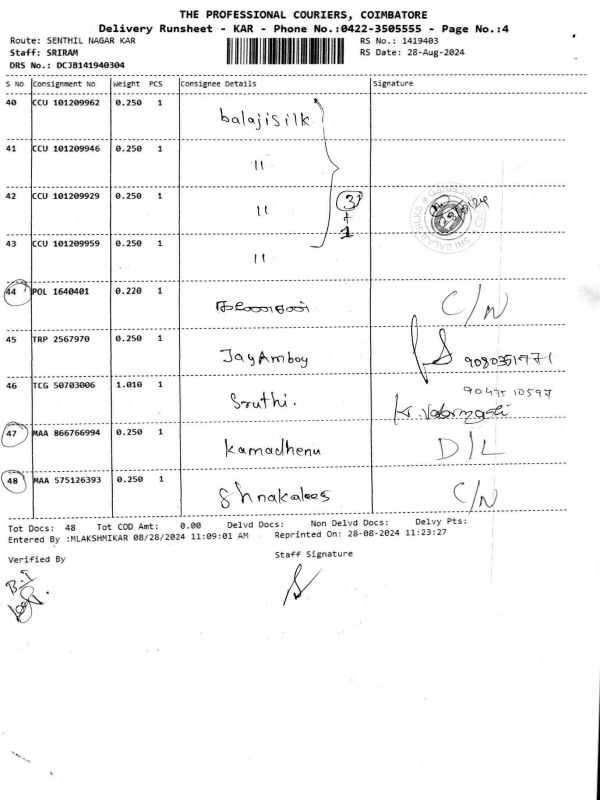 THE PROFESSIONAL COURIERS, COIMBATORE
Delivery Runsheet - KAR - Phone No.:0422-3505555 - Page No.:4
Route: SENTHIL NAGAR KAR RS No.: 1419403
Staff: SRIRAM RS Date: 28-Aug-2024
DRS No.: DCJB141940304
S No Consignment No Weight PCS Consignee Details Signature
40 CCU 101209962 0.250 1 balajisilk
41 CCU 101209946 0.250 1 "
42 CCU 101209929 0.250 1 " 3
+
1
43 CCU 101209959 0.250 1 "
44 POL 1640401 0.220 1 C/N
45 TRP 2567970 0.250 1 JayAmboy 9080351971
46 TCG 50703006 1.010 1 Sruthi. 9047510597
47 MAA 866766994 0.250 1 Kamadhenu D/L
48 MAA 575126393 0.250 1 C/N
Tot Docs: 48 Tot COD Amt: 0.00 Delvd Docs: Non Delvd Docs: Delvy Pts:
Entered By :MLAKSHMIKAR 08/28/2024 11:09:01 AM Reprinted On: 28-08-2024 11:23:27
Verified By Staff Signature